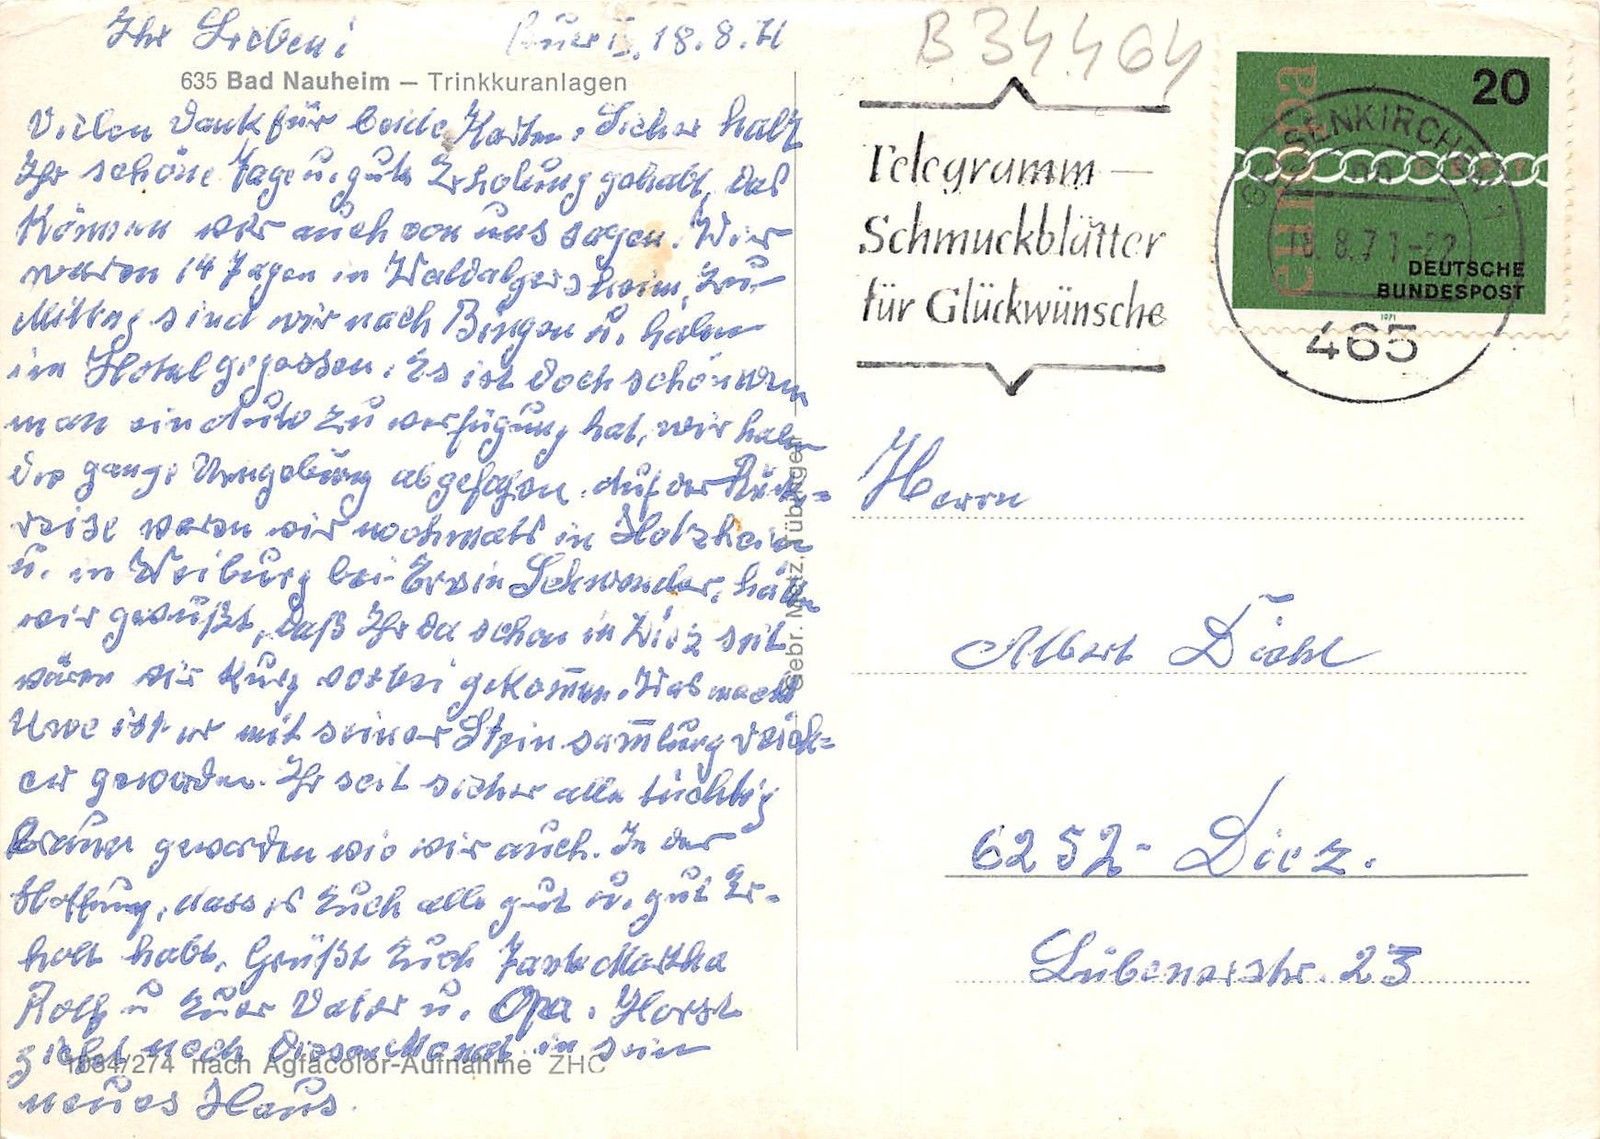 Ihr Lieben!
Buer, 18.8.71
635 Bad Nauheim – Trinkkuranlagen
Vielen Dank für beide Karten. Sicher habt
Ihr schöne Tage u. gute Erholung gehabt, das
können wir auch von uns sagen. Wir
waren 14 Tagen in Waldalgersheim, zu
Mittag sind wir nach Bingen u. haben
im Hotel gegessen. Es ist doch schön wenn
man ein Auto zu verfügung hat, wir haben
die ganze Umgebung abgefahren. Auf der Rück=
reise waren wir nochmals in Holzheim
u. in Weilburg bei Erwin Schwender, hätten
wir gewüßt, daß Ihr da schon in Diez seit
wären wir kurz vorbei gekommen. Was macht
Uwe ist er mit seiner Stein sammlung
er geworden. Ihr seit sicher alle tüchtig
braun geworden wie wir auch. In der
Hoffnung, dass es Euch alle gut u. gut Er-
holt habt, Grüßt Euch Tante Martha
Rolf u Euer Vater u. Opa. Horst
zieht noch diesen Monat in sein
neues Haus.
1034/274 nach Agfacolor-Aufnahme ZHC
Gebr. Metz, Tübingen
B 34.464
Telegramm –
Schmuckblätter
für Glückwünsche
europa
20
DEUTSCHE
BUNDESPOST
1971
GELSENKIRCHEN
18.8.71-22
465
Herrn
Albert Diehl
6252- Diez.
Lübenerstr. 23